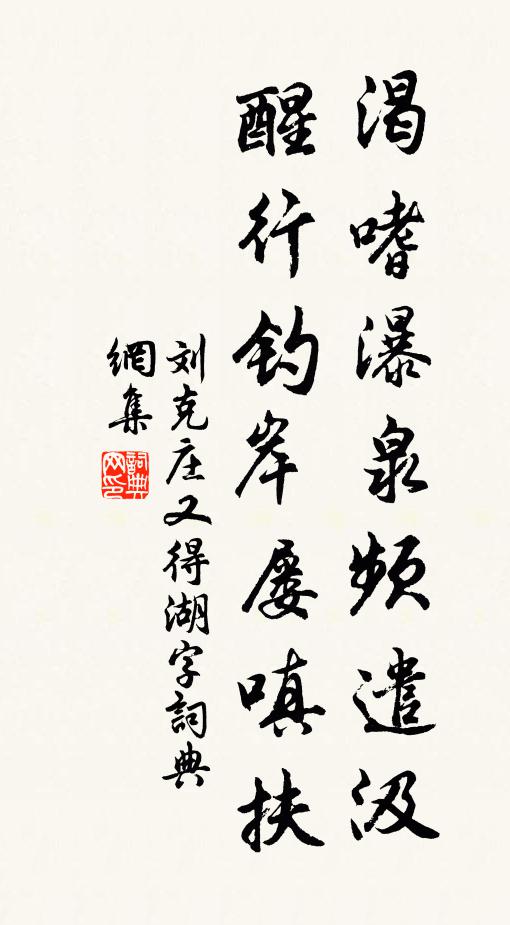 渴嗜瀑泉頻遣汲
醒行釣岸屡嗔扶
刘克庄又得湖字詞典
網集
詞典网印